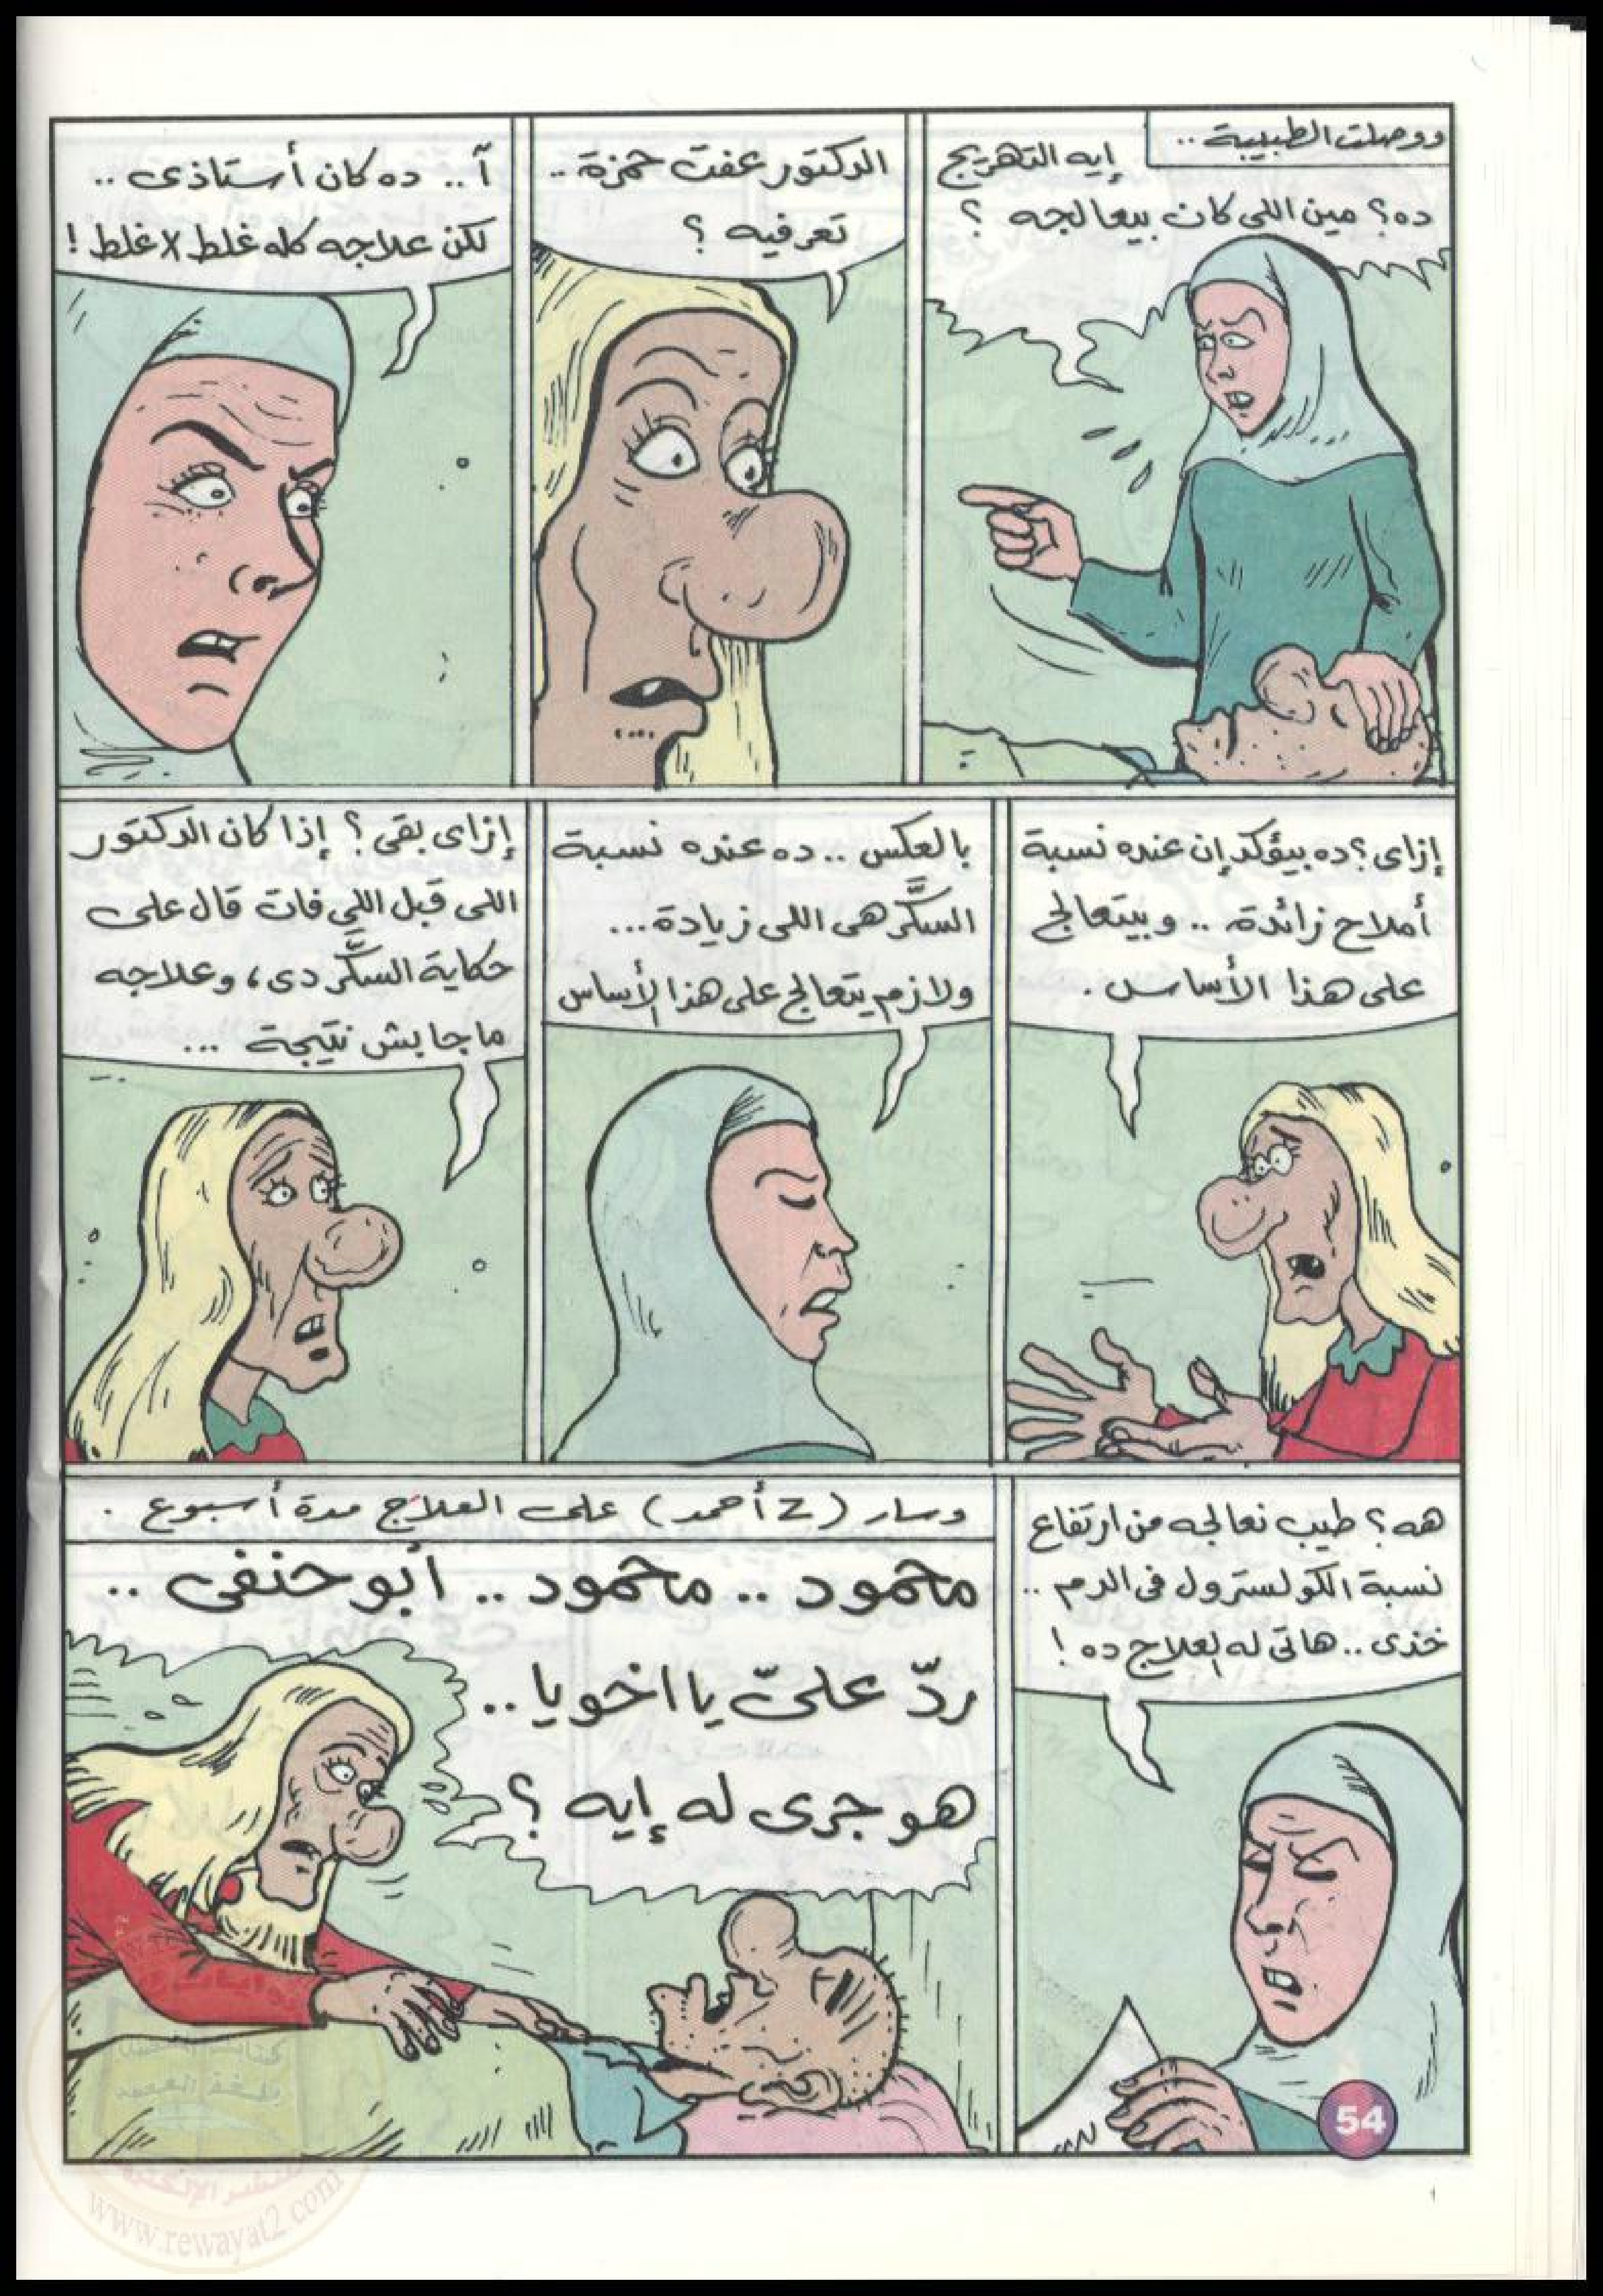 ووصلت الطبيبة ..
إيه التهريج
ده؟ مين اللى كان بيعالجه ؟
الدكتور عفت حمزة ..
تعرفيه ؟
آ .. ده كان أستاذى ..
لكن علاجه كله غلط × غلط !
إزاى؟ ده بيؤكد إن عنده نسبة
أملاح زائدة .. وبيتعالج
على هذا الأساس .
بالعكس .. ده عنده نسبة
السكَّر هى اللى زيادة ...
ولازم يتعالج على هذا الأساس
إزاى بقى ؟ إذا كان الدكتور
اللى قبل اللى فات قال على
حكاية السكَّر دى، وعلاجه
ماجابش نتيجة ...
هه؟ طيب نعالجه من ارتفاع
نسبة الكولسترول فى الدم ..
خدى .. هاتى له العلاج ده !
وسار (ع أحمد) على العلاج مدة أسبوع .
محمود .. محمود .. أبو حنفى ..
ردّ علىّ يا اخويا ..
هو جرى له إيه ؟
54
www.rewayat2.com